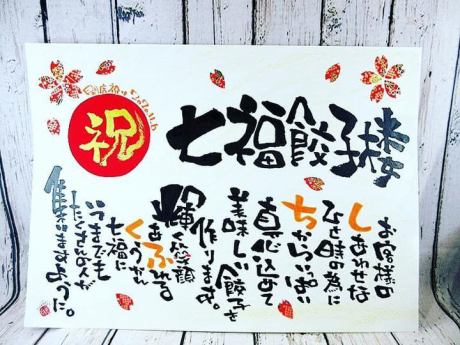 祝
七福餃子楼
お客様の
しあわせな
ひと時の為に
ちからいっぱい
真心込めて
美味しい餃子を
作ります。
輝く笑顔
あふれる
くうかん
七福に
いつまでも
たくさんの人が
集いますように。